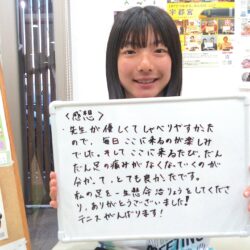 〈感想〉
・先生が優しくてしゃべりやすかった
ので、毎日ここに来るのが楽しみ
でした。そして、ここに来るたび、だん
だん足の痛みがなくなっていくのが
分かって、とても良かったです。
私の足を一生懸命治りょうをしてくださ
り、ありがとうございました!
テニスがんばります!